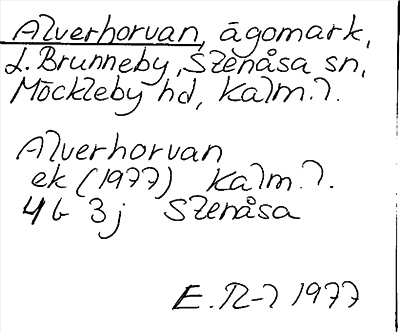 Alverhorvan, ägomark,
L. Brunneby, Stenåsa sn,
Möckleby hd, Kalm. l.
Alverhorvan
ek (1977) Kalm. l.
4G 3j Stenåsa
E. 1977